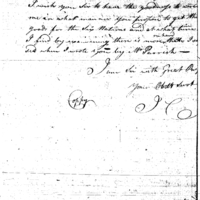 I wish you Sir to have the goodness to inform
me in what manner you propose to get the
goods for the Six Nations and at what time
I find by examining there is more than I
did when I wrote you by Mr Parrish —
I am Sir with Great
your Obdt Servt
J C
Copy